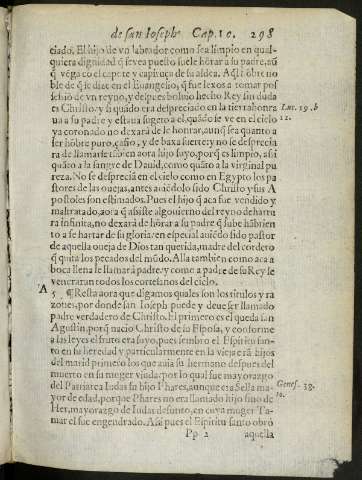 de san Ioseph. Cap. 10. 298
ciado. El hijo de vn labrador como sea limpio en qual-
quiera dignidad q̃ se vea puesto suele hõrar a su padre, aũ
q̃ vẽga cõ el capote y de su aldea. Aq̃l hõbre no
ble de q̃ se dize en el Euangelio, q̃ fue lexos a tomar pos
sessiõ de vn reyno, y despues boluio hecho Rey sin duda
es Christo, y si quãdo era despreciado en la tierra honra
ua a su padre y estaua sugeto a el, quãdo se ve en el cielo
ya coronado no dexarà de le honrar, aunq̃ sea quanto a
ser hõbre puro, y de baxa suerte: y no se desprecia
ra de llamarse tãbien aora hijo suyo, porq̃ es limpio, assi
quãto a la sangre de Dauid, como quãto a la virginal pu
reza. No se desprecia en el cielo como en Egypto los pa
stores de las ouejas, antes auiẽdolo sido Christo y sus A
postoles son estimados. Pues el hijo q̃ aca fue vendido y
maltratado, aora q̃ assiste al gouierno del reyno de hartu
ra infinita, no dexarà de hõrar a su padre q̃ sube hãbrien
to a se hartar de su gloria: en especial auiẽdo sido pastor
de aquella oueja de Dios tan querida, madre del cordero
q̃ quita los pecados del mũdo. Alla tambien como aca a
boca llena le llamarà padre: y como a padre de su Rey le
veneraran todos los cortesanos del cielo.
A
5 ¶ Resta aora que digamos quales son los titulos y ra
zones, por donde san Ioseph puede y deue ser llamado
padre verdadero de Christo. El primero es el que da san
Agustin, porq̃ nacio Christo de su Esposa, y conforme
a las leyes el fruto era suyo, pues sembrò el Espiritu san-
to en su heredad y particularmente en la vieja erã hijos
del marido primero los que auia su hermano despues del
muerto en su muger viuda: por lo qual fue mayorazgo
del Patriarca Iudas su hijo Phares, aunque era Sella ma-
yor de edad, porque Phares no era llamado hijo sino de
Her, mayorazgo de Iudas defunto, en cuya muger Ta-
mar el fue engendrado. Assi pues el Espiritu santo obrò
Pp 2 aquella
Luc. 19. b
12.
Genes. 38.
10.